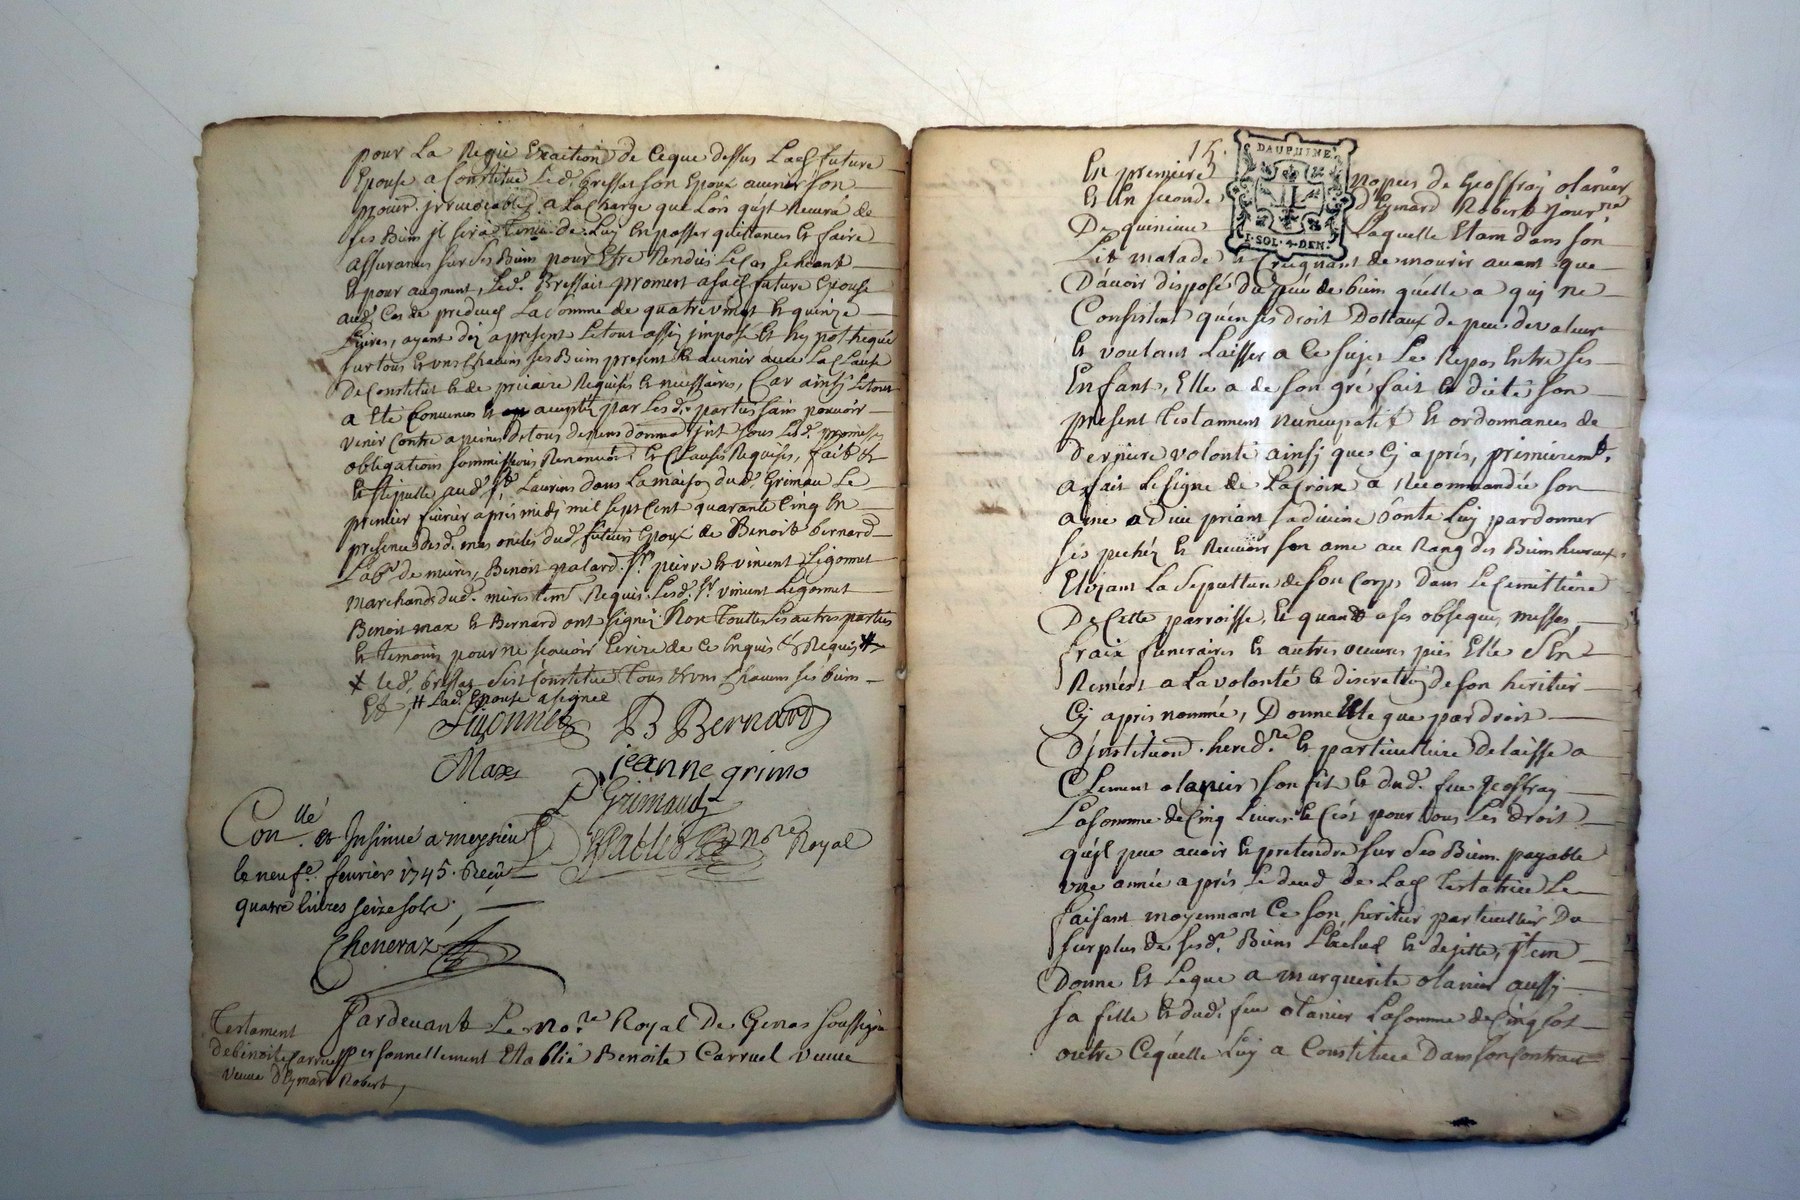 pour La Regie Exaition de Ceque dessus Lad. future
Epouse a Constitué Led. bressat son Epoux auenir son
procur. jrreuocable a La Charge que Lors qu'jl Receura de
ses Biens jl sera tenu de Luy En passer quittances Et faire
assurances sur ses Biens pour Estre Rendus Le Cas Echeant
Et pour augment, Led. Bressat promest a sad. future Epouse
aud. Cas de predeces La somme de quatre vingt Et quinze
Liures, ayant dez apresent Le tout assis jmposé Et hypothequé
sur tous Et vns Chacuns ses Biens presents Et auenir auec La Clause
De Constitut Et de precaire Requises Et necessaires, Car ainsy Le tout
a Eté Conuenus Et accepté par Lesd. parties sans pouuoir
venir Contre a peines De tous depens dommages jnt. sous Lesd. promesses
obligations soumissions Renonciaons Et Clauses Requises, fait Et
Et stipullé aud. St. Laurens dans La maison dud. Grimau Le
premier feurier aprés midy mil sept Cent quarante Cinq En
presence desd. mes oncles dud. futeurs Epoux de Benoit bernard
Labr. de mures, Benoit palard, Sr. pierre Et vincent Ligonnet
marchands dud. mures tem. Requis. Lesd. Sr. vincent Ligonnet
Benoit max Et Bernard ont signé Non Touttes Les autres parties
Et temoins pour ne scauoir Ecrire de Ce Enquis Et Requis #
Led. bressat s'est Constitué Tous Et vns Chacuns ses biens
Et, # Lad. Epouse a signée
Ligonnet B Bernard
Max jeanne grimo
P Grimaud
Pablio nore. Royal
Conllé. et Insinué a meysieu
le neufe. fevrier 1745. Reçu
quatre livres seize sols
Cheneraz
Testament
de benoite Carruel
veuue d'Eymard Robert,
Pardeuant Le nore. Royal De Genas soussigné
personnellement Etablie Benoite Carruel veuue
15.
DAUPHINE
1·SOL·4·DEN.
En premiere nopces de Geoffray olanier
Et En seconde d'Eymard Robert journ.
De quinieu Laquelle Etant dans son
Lit malade Et Craignant de mourir auant que
D'auoir disposé du peu de biens qu'elle a qui ne
Consistent qu'en ses droit Dottaux de peu de valeur
Et voulant Laisser a Ce sujet Le Repos Entre ses
Enfant, Elle a de son gré fait Et dicté son
present testament nuncupatif Et ordonnances de
derniere volonté ainsy que Cy aprés, premierement.
a fait Le signe de La Croix a Recommandée son
ame a dieu priant sa diuine bonte Luy pardonner
ses pechéz Et Receuoir son ame au Rang des Bienheureux
Elizant La sepulture de son Corps dans Le Cemittiere
De Cette parroisse, Et quand a ses obseques messes,
fraix funeraires Et autres oeuures pies Elle s'En
Remest a La volonté Et discretion de son heritier
Cy apres nommé, Donne Legue par droit
D'jnstituon. hered.re Et particuliere delaisse a
Clement olanier son fils Et dud. feu geoffray
La somme de Cinq Liures Et C'est pour tous Les droit
qu'jl peu auoir Et pretendre sur ses Biens payable
vne année aprés Le deced de Lad. testatrice Le
faisant moyennant Ce son heritier particulier Du
surplus de sesd. Biens L'Exclud Et dejette, jtem
Donne Et Legue a marguerite olanier aussy
sa fille Et dud. feu olanier La somme de Cinq sols
outre Cequ'elle Luy a Constitué Dans son Contract